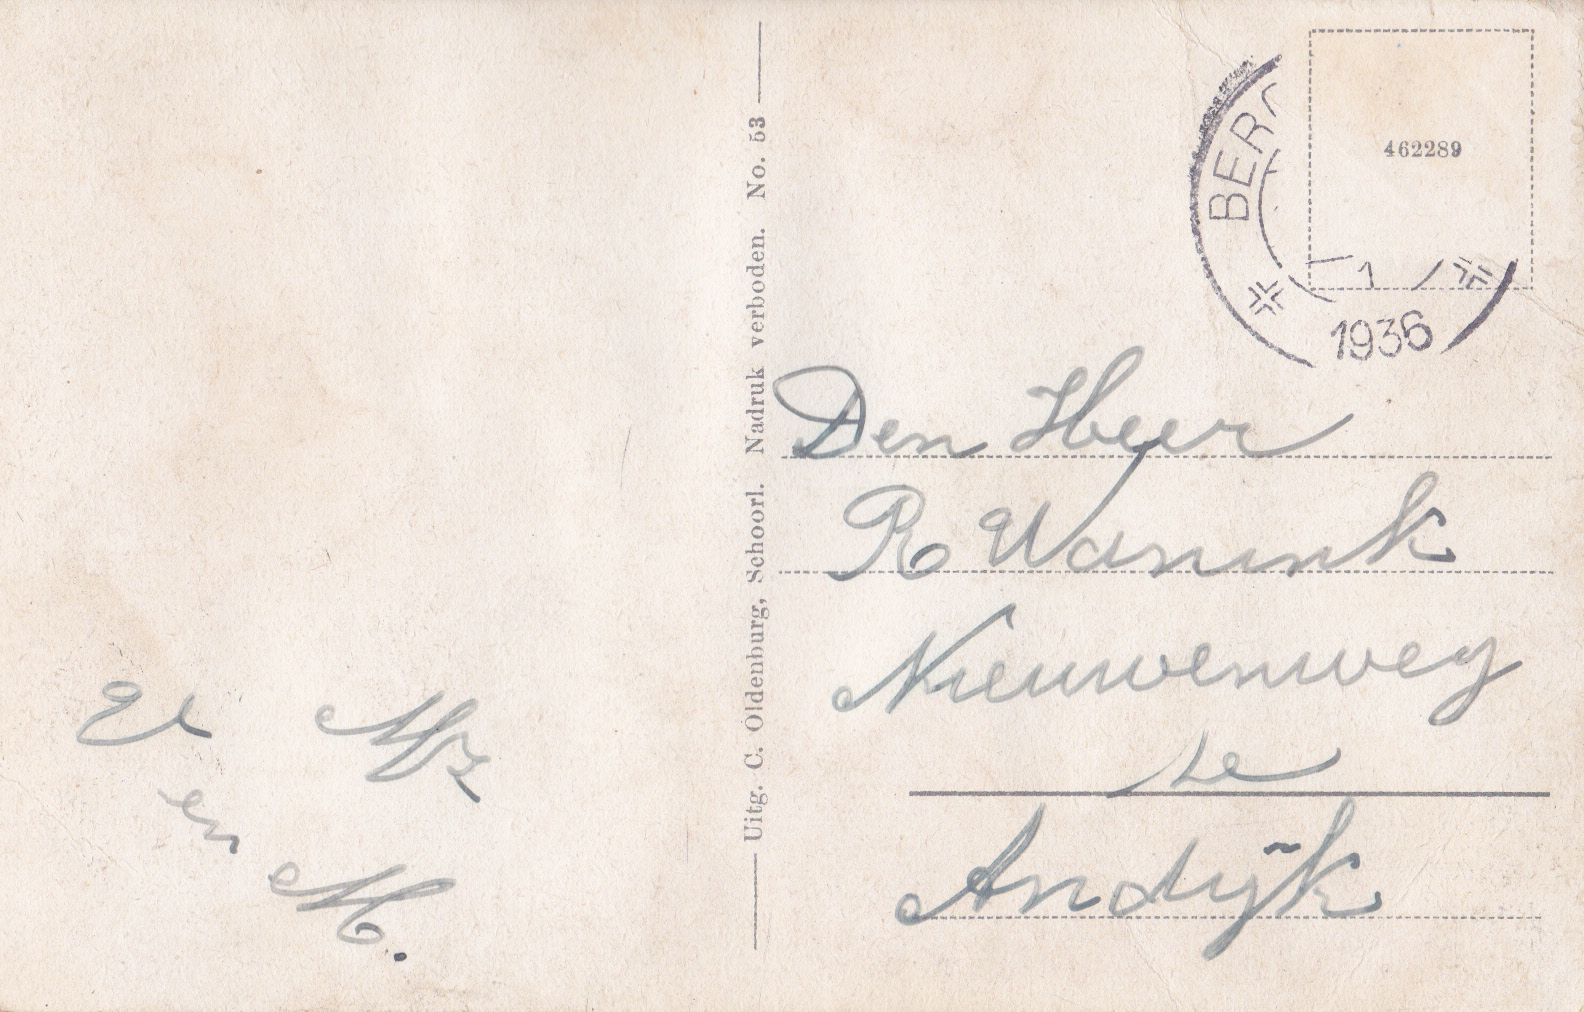 Uitg. C. Oldenburg, Schoorl. Nadruk verboden. No. 53
462289
BERG
1
1936
Den Heer
R Wanink
Nieuwenweg
te
Andijk
en
M.